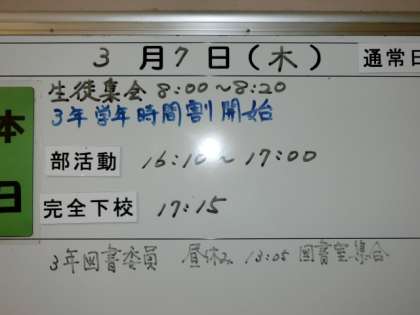 3月7日(木) 通常日
本日
生徒集会 8:00〜8:20
3年学年時間割開始
部活動 16:10〜17:00
完全下校 17:15
3年図書委員 昼休み 13:05 図書室集合